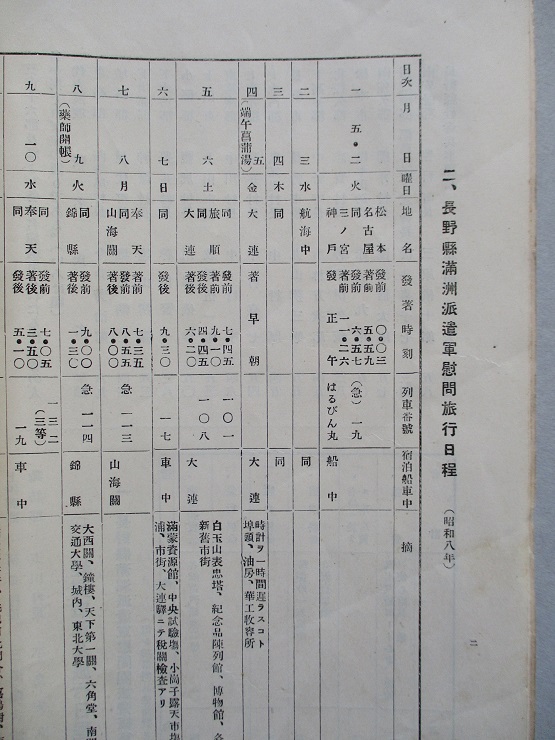 二、長野縣滿洲派遣軍慰問旅行日程 (昭和八年)
二
日次 月 日 曜日 地名 發著時刻 列車番號 宿泊船車中 摘
一 五・二 火 松本 發前 〇・〇三
名古屋 著前 五・五九
同 發前 (急)一九
三ノ宮 著前 一一・二六
神戸 發 正午 はるびん丸 船中
二 三 水 航海中 同
三 四 木 同 同
四 五 金 大連 著 早朝 大連
(端午菖蒲湯)
時計ヲ一時間遲ラスコト
埠頭、油房、華工收容所
五 六 土 同 發前 七・四五 一〇一
旅順 著前 九・一〇
同 發後 四・四五 一〇八
大連 著後 大連
白玉山表忠塔、紀念品陳列館、博物館、
新舊市街
六 七 日 同 發後 九・三〇 一七 車中
滿蒙資源館、中央試驗場、小崗子露天市場
浦、市街、大連驛ニテ税關檢查アリ
七 八 月 奉天 著前 七・三五
同 發前 八・五五 急 一一三
山海關 著後 八・〇〇 山海關
八 九 火 同 發前 九・〇〇 急 一一四
(藥師開帳) 錦縣 著後 一・三〇 錦縣
大西關、鐘樓、天下第一關、六角堂、南
交通大學、城內、東北大學
九 一〇 水 同 發前 七・〇五 一三二
奉天 著後 三・五〇 (三等)
同 發後 五・一〇 一九 車中